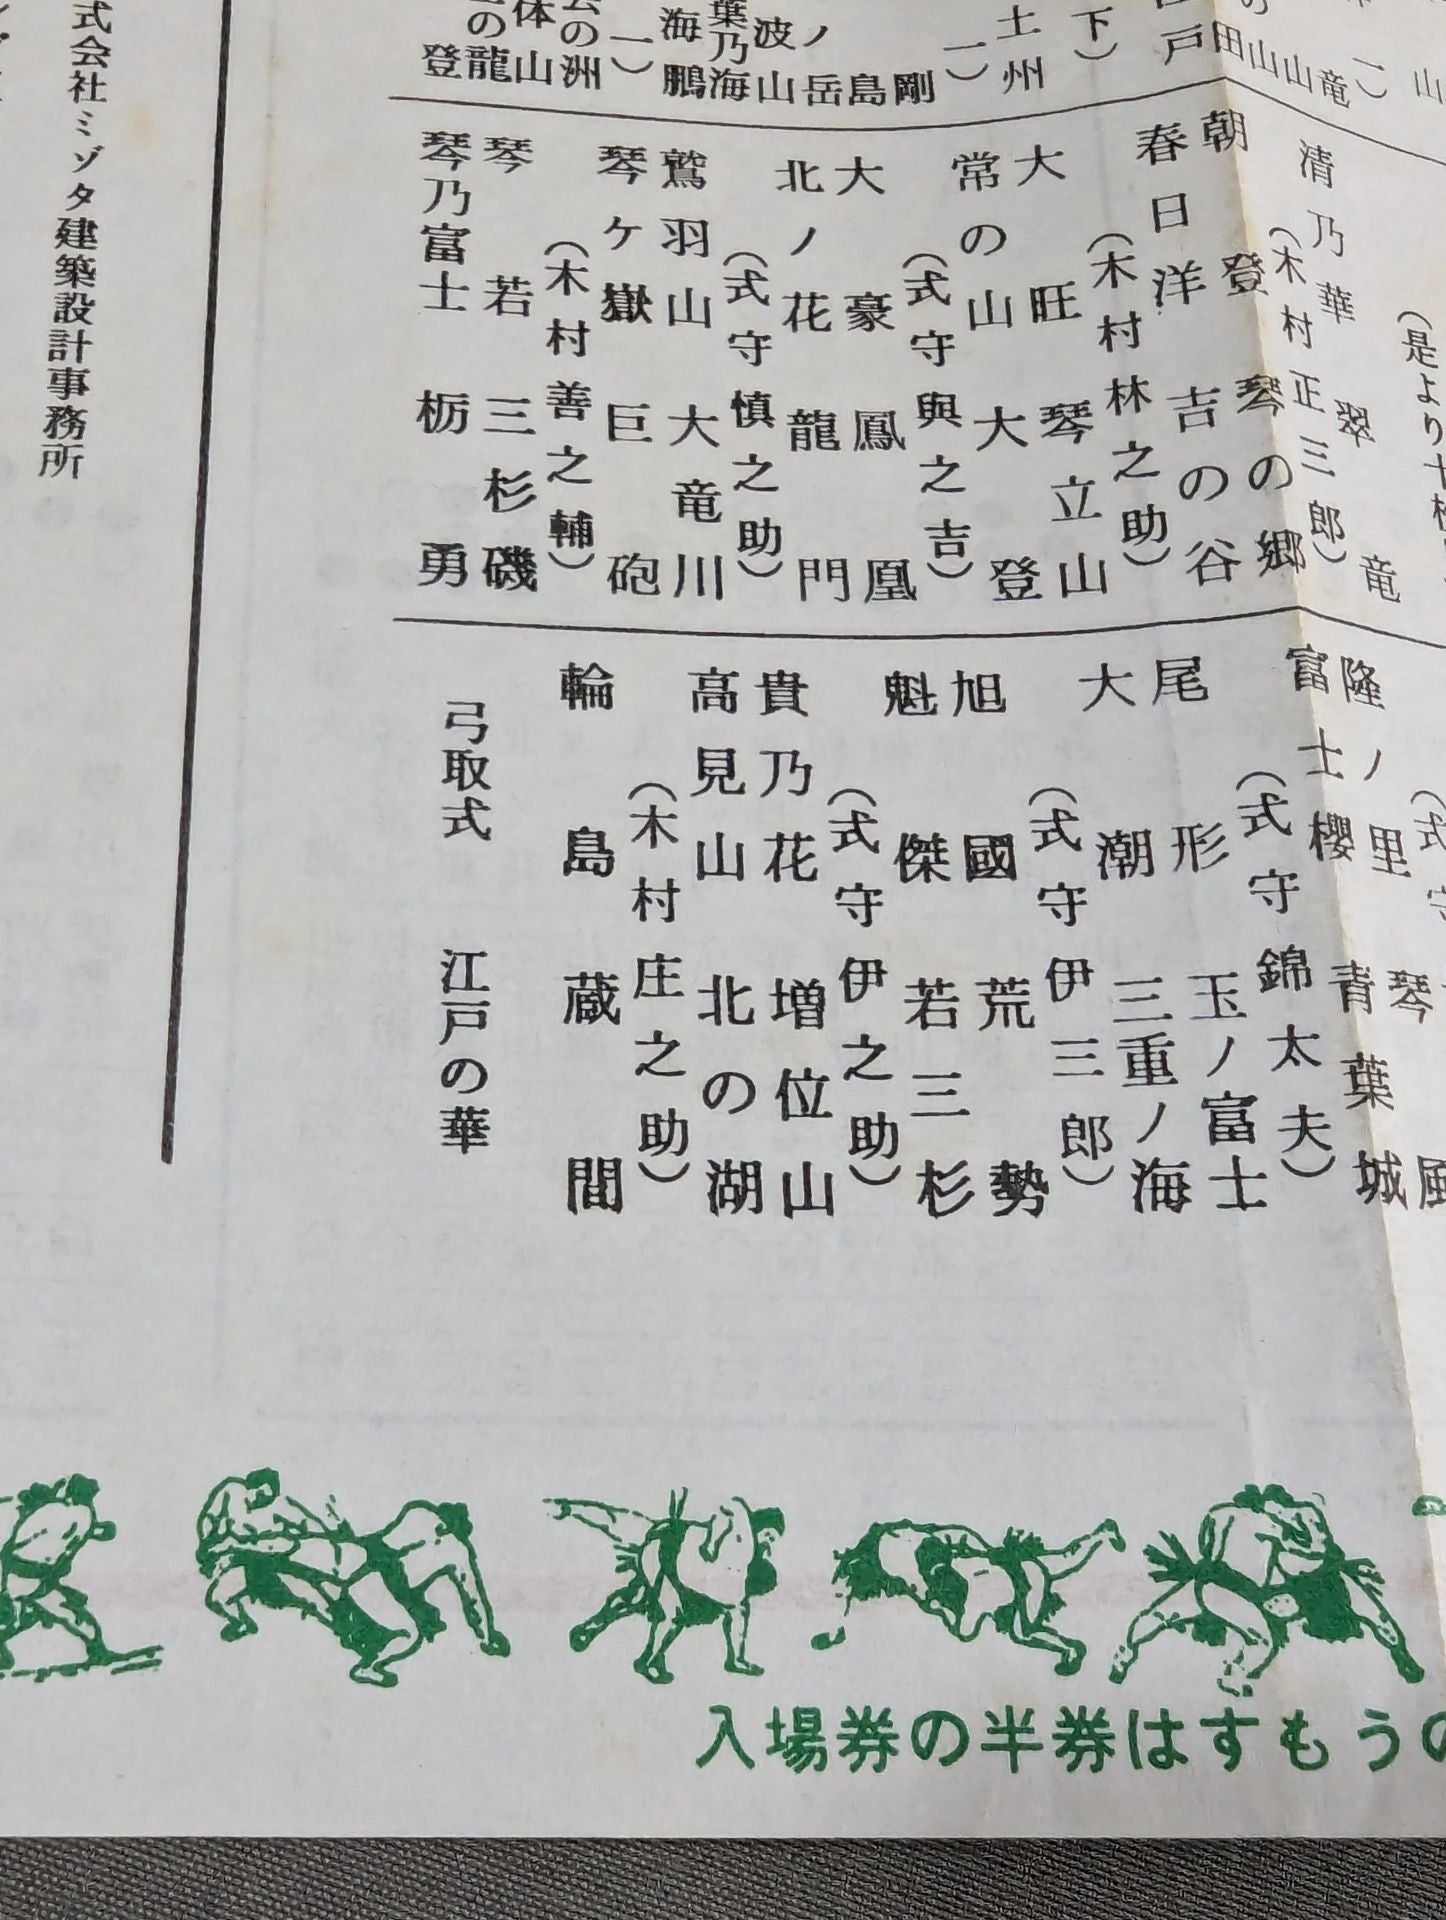 山
一）
竜
山
山
の田
戸
下）
土州
一）
剛
島
ノ岳
波山
葉乃海
海鵬
一）
の洲
体山
の龍
登
（是より十枚
清乃華　翠竜
（木村正三郎）
朝登　琴の郷
春日洋　吉の谷
（木村林之助）
大旺　琴立山
常の山　大登
（式守與之吉）
大豪　鳳凰
北ノ花　龍門
（式守慎之助）
鷲羽山　大竜川
琴ケ嶽　巨砲
（木村善之輔）
琴若　三杉磯
琴乃富士　栃勇
（式守
隆ノ里　琴風
富士櫻　青葉城
（式守錦太夫）
尾形　玉ノ富士
大潮　三重ノ海
（式守伊三郎）
旭國　荒勢
魁傑　若三杉
（式守伊之助）
貴乃花　増位山
高見山　北の湖
（木村庄之助）
輪島　蔵間
弓取式　江戸の華
式会社ミゾタ建築設計事務所
入場券の半券はすもうの